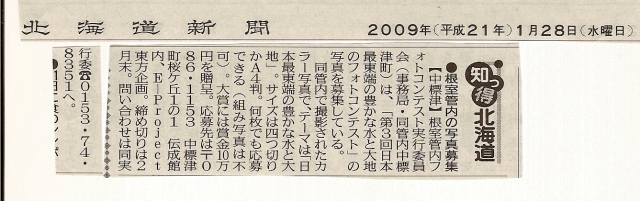 北海道新聞
2009年(平成21年)1月28日(水曜日)
知っ得北海道
●根室管内の写真募集
【中標津】根室管内フ
ォトコンテスト実行委員
会（事務局・同管内中標
津町）は、「第3回日本
最東端の豊かな水と大地
のフォトコンテスト」の
写真を募集している。
同管内で撮影されたカ
ラー写真で、テーマは「日
本最東端の豊かな水と大
地」。サイズは四つ切り
かA4判。何枚でも応募
できる（組み写真は不
可）。大賞には賞金10万
円を贈呈。応募先は〒0
86・1153 中標津
町桜ケ丘1の1 伝成館
内、E―Project
東方企画。締め切りは2
月末。問い合わせは同実
行委☎0153・74・
8351へ。